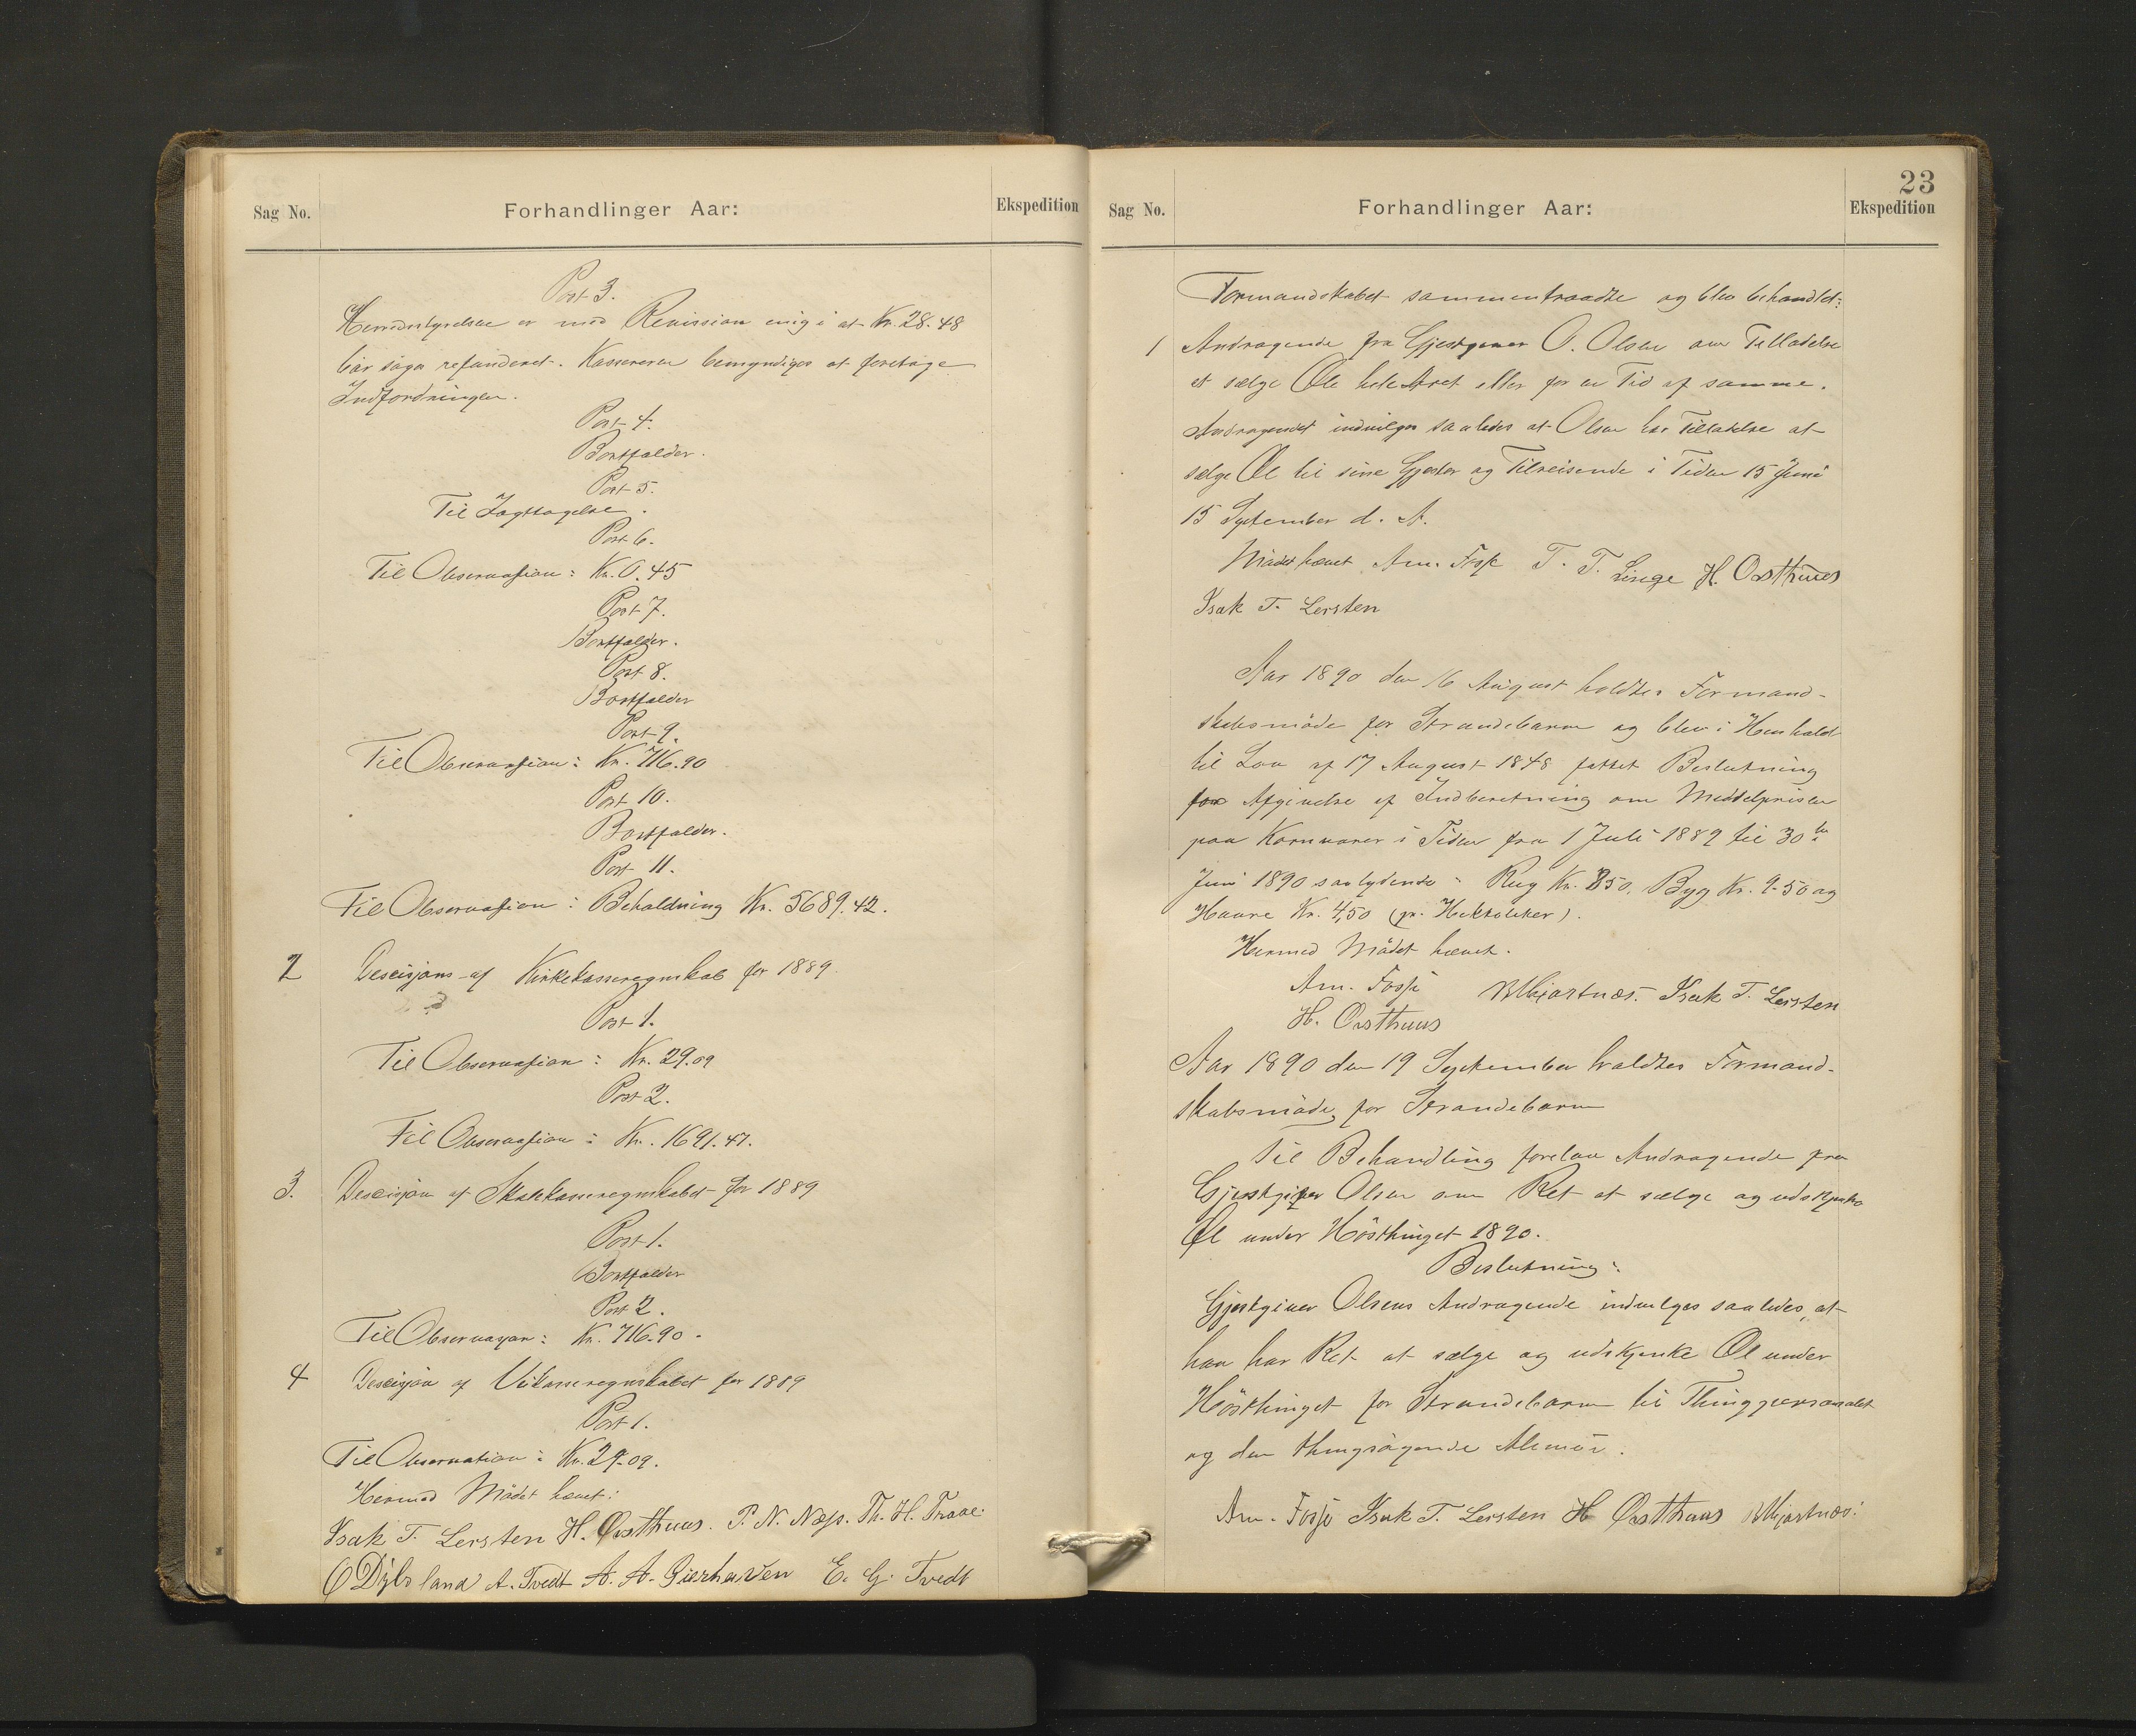 Sag No.
Forhandlinger Aar:
Ekspedition
Post 3.
Herredsstyrelsen er med Revision enig i at Kr. 28.48
bør søges refunderet. Kassereren bemyndiges at foretage
Indfordringen.
Post 4.
Bortfalder.
Post 5.
Til Iagttagelse.
Post 6.
Til Observasjon: Kr. 0.45
Post 7.
Bortfalder.
Post 8.
Bortfalder
Post 9.
Til Observasjon: Kr. 716.90
Post 10.
Bortfalder.
Post 11.
Til Observasjon: Beholdning Kr. 5689.42.
2 Descisjons af Kirkekasseregnskab for 1889.
Post 1.
Til Observasjon: Kr. 29.09
Post 2.
Til Observasjon: Kr. 1691.47.
3. Descisjon af Skolekasseregnskabet for 1889
Post 1.
Bortfalder
Post 2.
Til Observasjon: Kr. 716.90.
4 Descisjon af Veikasseregnskabet for 1889
Post 1.
Til Observation: Kr. 29.09.
Hermed Mödet hævet:
Isak T. Lersten H. Ousthuus. P. N. Næss. Th. H. Traae.
O Dybsland A. Tvedt A. A. E. G. Tvedt
23
Sag No.
Forhandlinger Aar:
Ekspedition
Formandskabet sammentraadte og blev behandlet:
1 Andragende fra Gjestgiver O. Olsen om Tilladelse
at sælge Øl hele Aaret eller for en Tid af samme.
Andragendet indvilges saaledes at Olsen har Tilladelse at
sælge Øl til sine Gjester og Tilreisende i Tiden 15 Juni
15 September d. A.
Mödet hævet Am. Fosse T. T. Linge H. Ousthuus
Isak T. Lersten
Aar 1890 den 16 August holdtes Formand-
skabsmöde for Strandebarm og blev i Henhold
til Lov af 17 August 1848 fattet Beslutning
for Afgivelse af Indberetning om Middelpriser
paa Kornvarer i Tiden fra 1 Juli 1889 til 30te
Juni 1890 saalydende: Rug Kr. 850. Byg Kr. 9.50 og
Havre Kr. 4,50 (pr. Hektoliter).
Hermed Mödet hævet.
Am. Fosse Isak T. Lersten
H. Ousthuus
Aar 1890 den 19 September holdtes Formand-
skabsmöde for Strandebarm
Til Behandling forelaa Andragende fra
Gjestgiver Olsen om Ret at sælge og udskjenke
Øl under Hösthinget 1890.
Beslutning:
Gjestgiver Olsens Andragende indvilges saaledes, at
han har Ret at sælge og udskjenke Øl under
Hösthinget for Strandebarm til Thingpersonalet
og den thingsögende Almue.
Am. Fosse Isak T. Lersten H Ousthuus